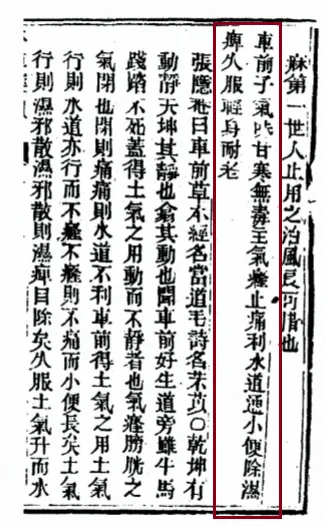 麻第一世人止用之治風良可惜也
車前子氣味甘寒無毒主氣癃止痛利水道通小便除濕
痺久服輕身耐老
張隱菴曰車前草本經名當道毛詩名芣苡〇乾坤有
動靜夫坤其靜也翕其動也闢車前好生道旁雖牛馬
踐踏不死蓋得土氣之用動而不靜者也氣癃膀胱之
氣閉也閉則痛痛則水道不利車前得土氣之用土氣
行則水道亦行而不癃不癃則不痛而小便長矣土氣
行則濕邪散濕邪散則濕痺自除矣久服土氣升而水